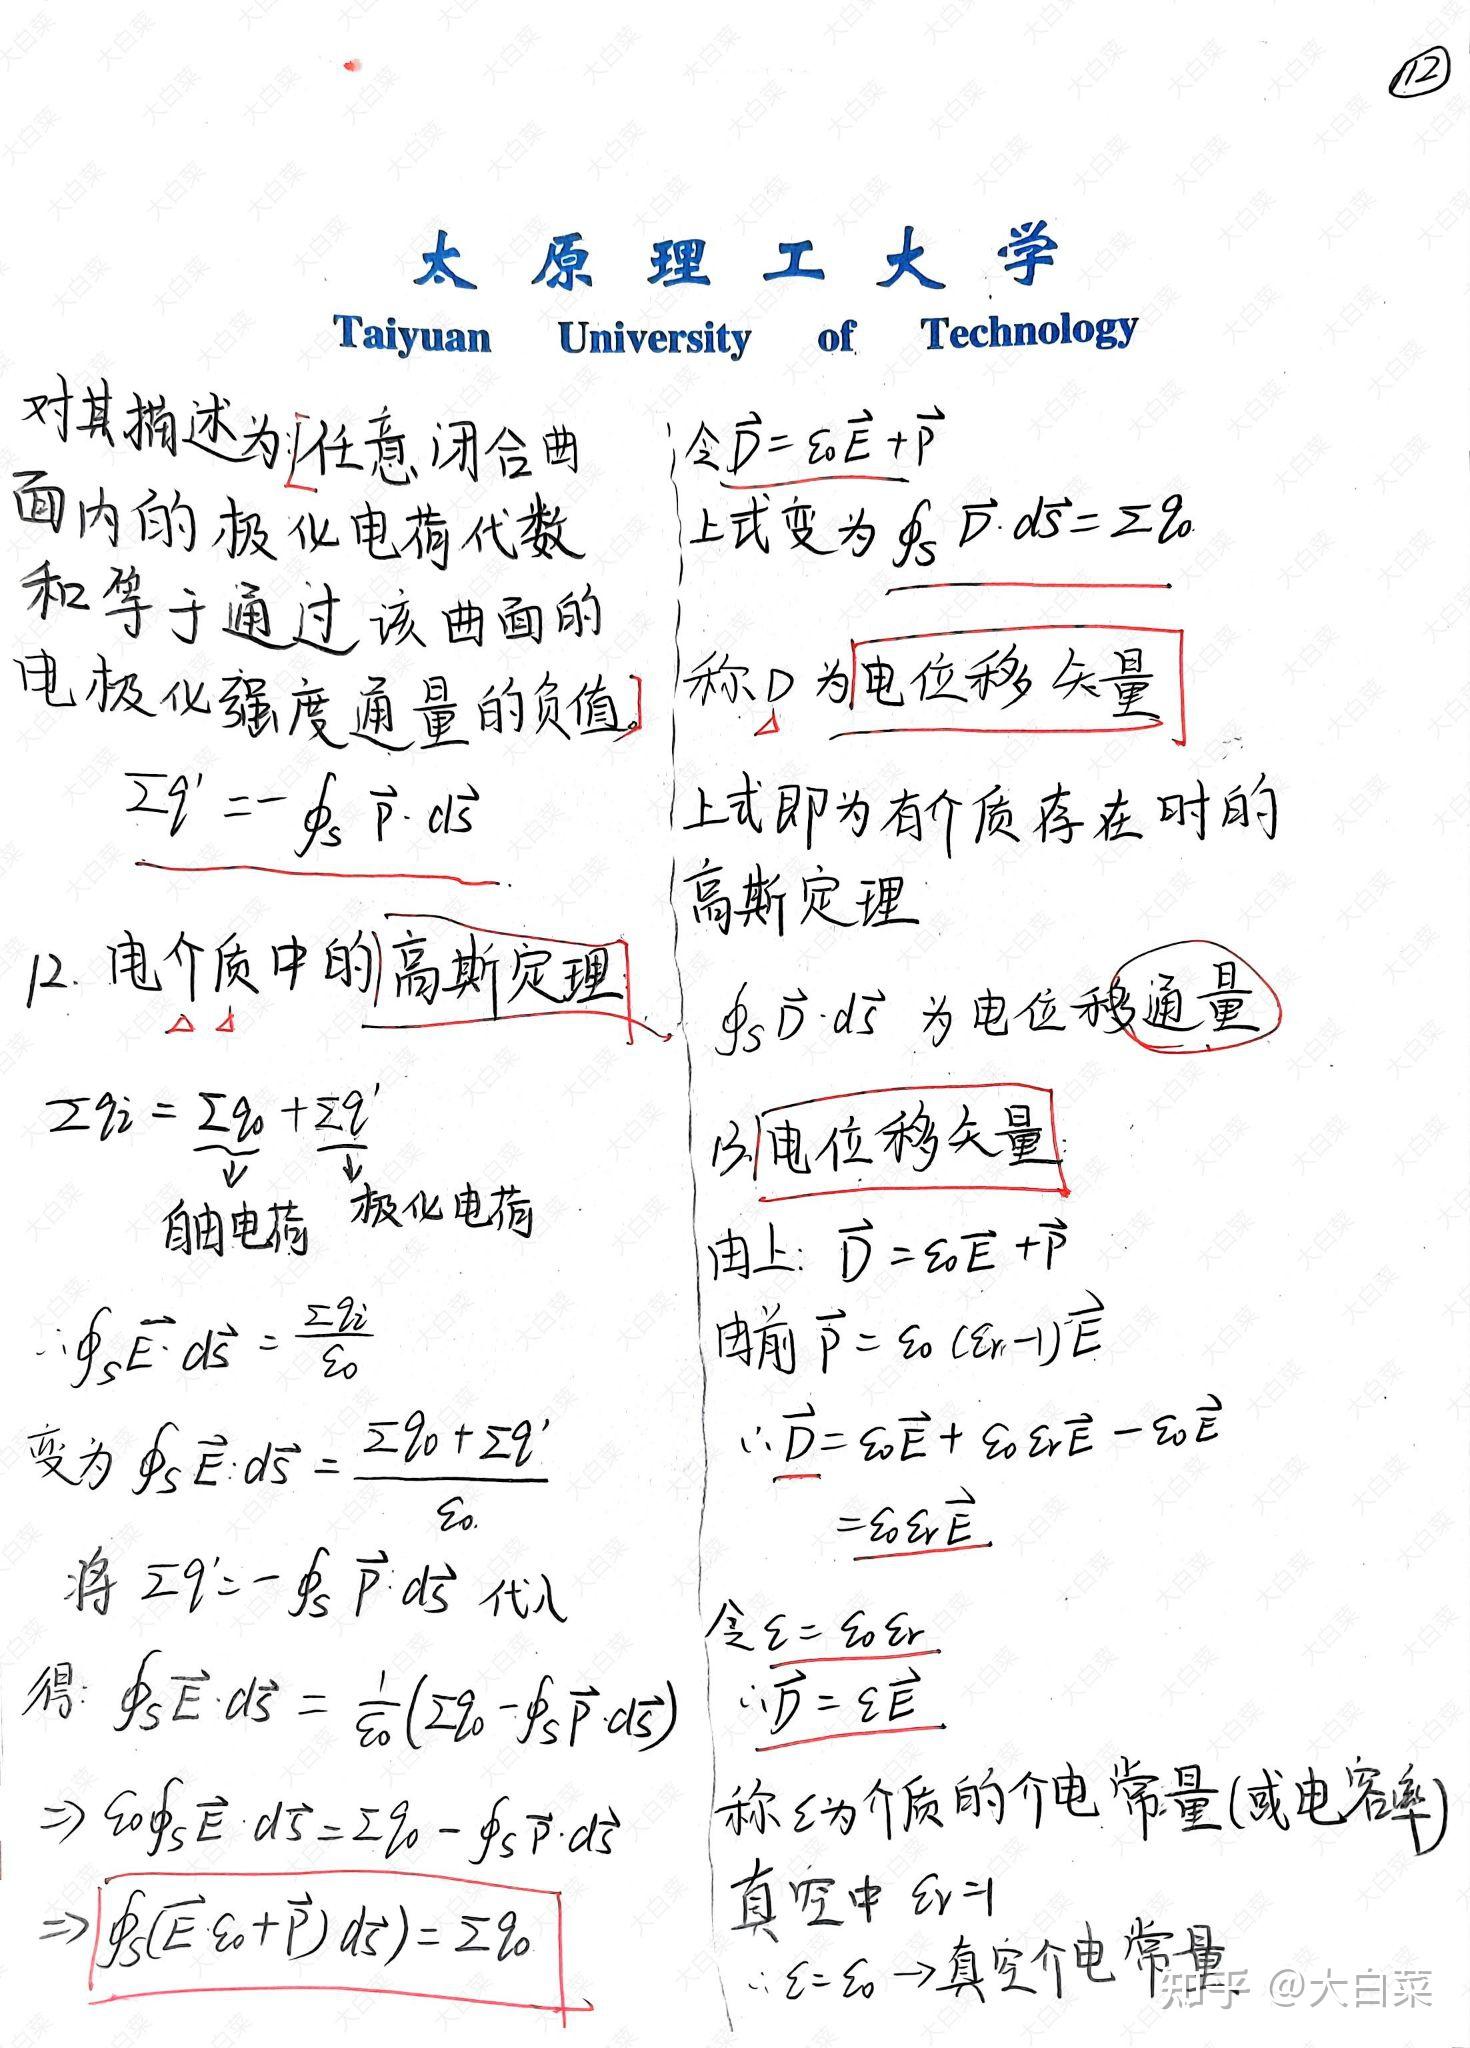 12
太原理工大学
Taiyuan University of Technology
对其描述为[任意闭合曲
面内的极化电荷代数
和等于通过该曲面的
电极化强度通量的负值。]
Σq′ = -∮ₛ P⃗·ds⃗
12. 电介质中的高斯定理
Σqi = Σq₀ + Σq′
自由电荷 极化电荷
∴∮ₛE⃗·ds⃗ = Σqi/ε₀
变为 ∮ₛE⃗·ds⃗ = (Σq₀ + Σq′)/ε₀
将 Σq′ = -∮ₛ P⃗·ds⃗ 代入
得: ∮ₛE⃗·ds⃗ = 1/ε₀(Σq₀ - ∮ₛP⃗·ds⃗)
⇒ ε₀∮ₛE⃗·ds⃗ = Σq₀ - ∮ₛP⃗·ds⃗
⇒ ∮ₛ(E⃗·ε₀+P⃗)ds⃗) = Σq₀
令D⃗ = ε₀E⃗ + P⃗
上式变为 ∮ₛ D⃗·ds⃗ = Σq₀
称D为电位移矢量
上式即为有介质存在时的
高斯定理
∮ₛD⃗·ds⃗ 为电位移通量
13. 电位移矢量
由上: D⃗ = ε₀E⃗ + P⃗
由前 P⃗ = ε₀(εr-1)E⃗
∴D⃗ = ε₀E⃗ + ε₀εrE⃗ - ε₀E⃗
= ε₀εrE⃗
令ε = ε₀εr
∴D⃗ = εE⃗
称ε为介质的介电常量(或电容率)
真空中 εr=1
∴ε=ε₀→真空介电常量
知乎 @大白菜